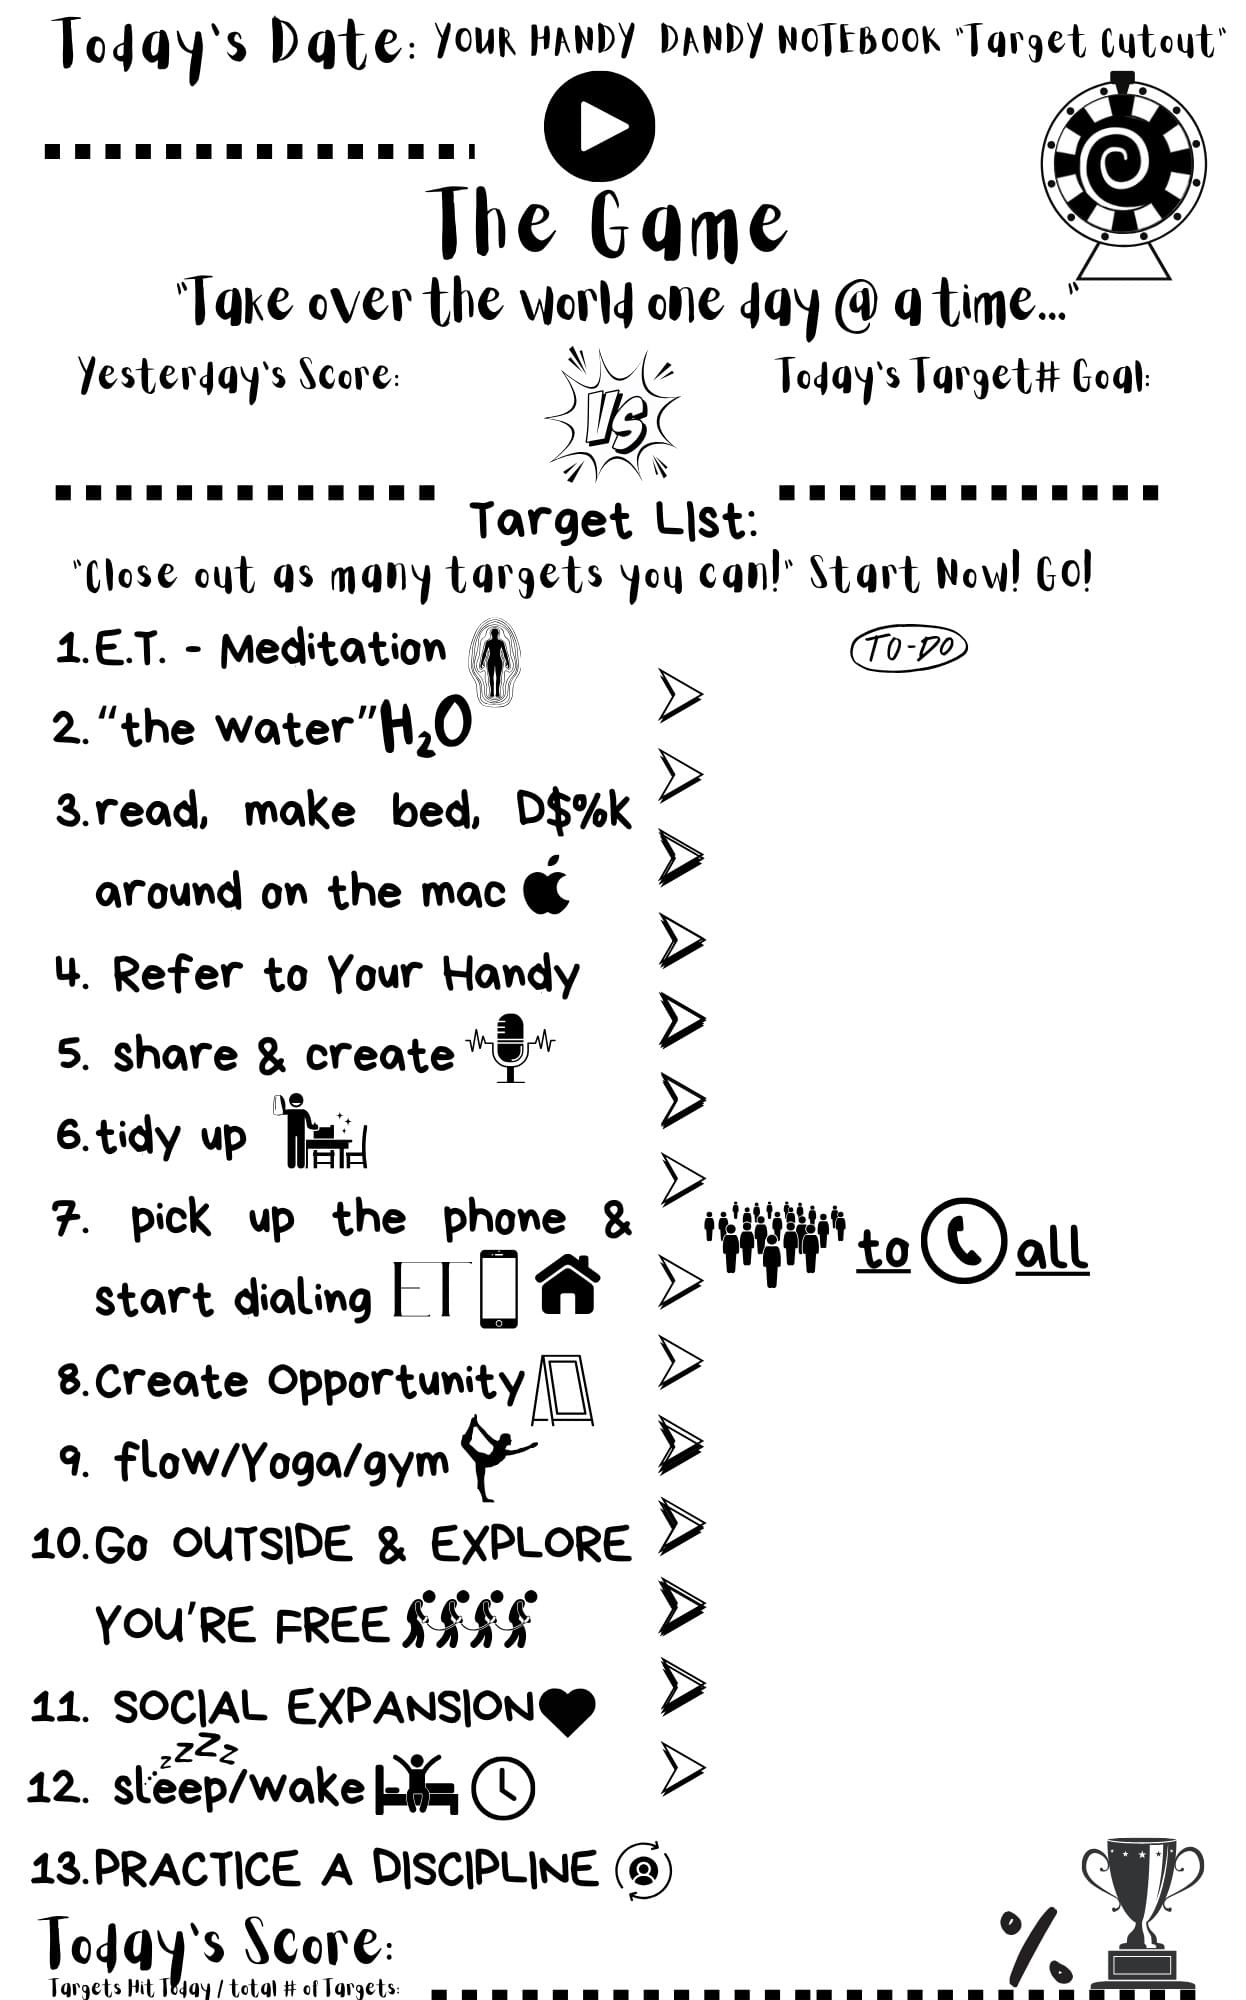 Today's Date: YOUR HANDY DANDY NOTEBOOK "Target Cutout"
The Game
"Take over the world one day @ a time..."
Yesterday's Score:
VS
Today's Target# Goal:
Target LIst:
"Close out as many targets you can!" Start Now! GO!
1. E.T. - Meditation
TO-DO
2. “the water” H₂O
3. read, make bed, D$%k
around on the mac
4. Refer to Your Handy
5. share & create
6. tidy up
7. pick up the phone &
to all
start dialing ET
8. Create Opportunity
9. flow/Yoga/gym
10. Go OUTSIDE & EXPLORE
YOU'RE FREE
11. SOCIAL EXPANSION
zzZZz
12. sleep/wake
13. PRACTICE A DISCIPLINE
Today's Score:
%
Targets Hit Today / total # of Targets: